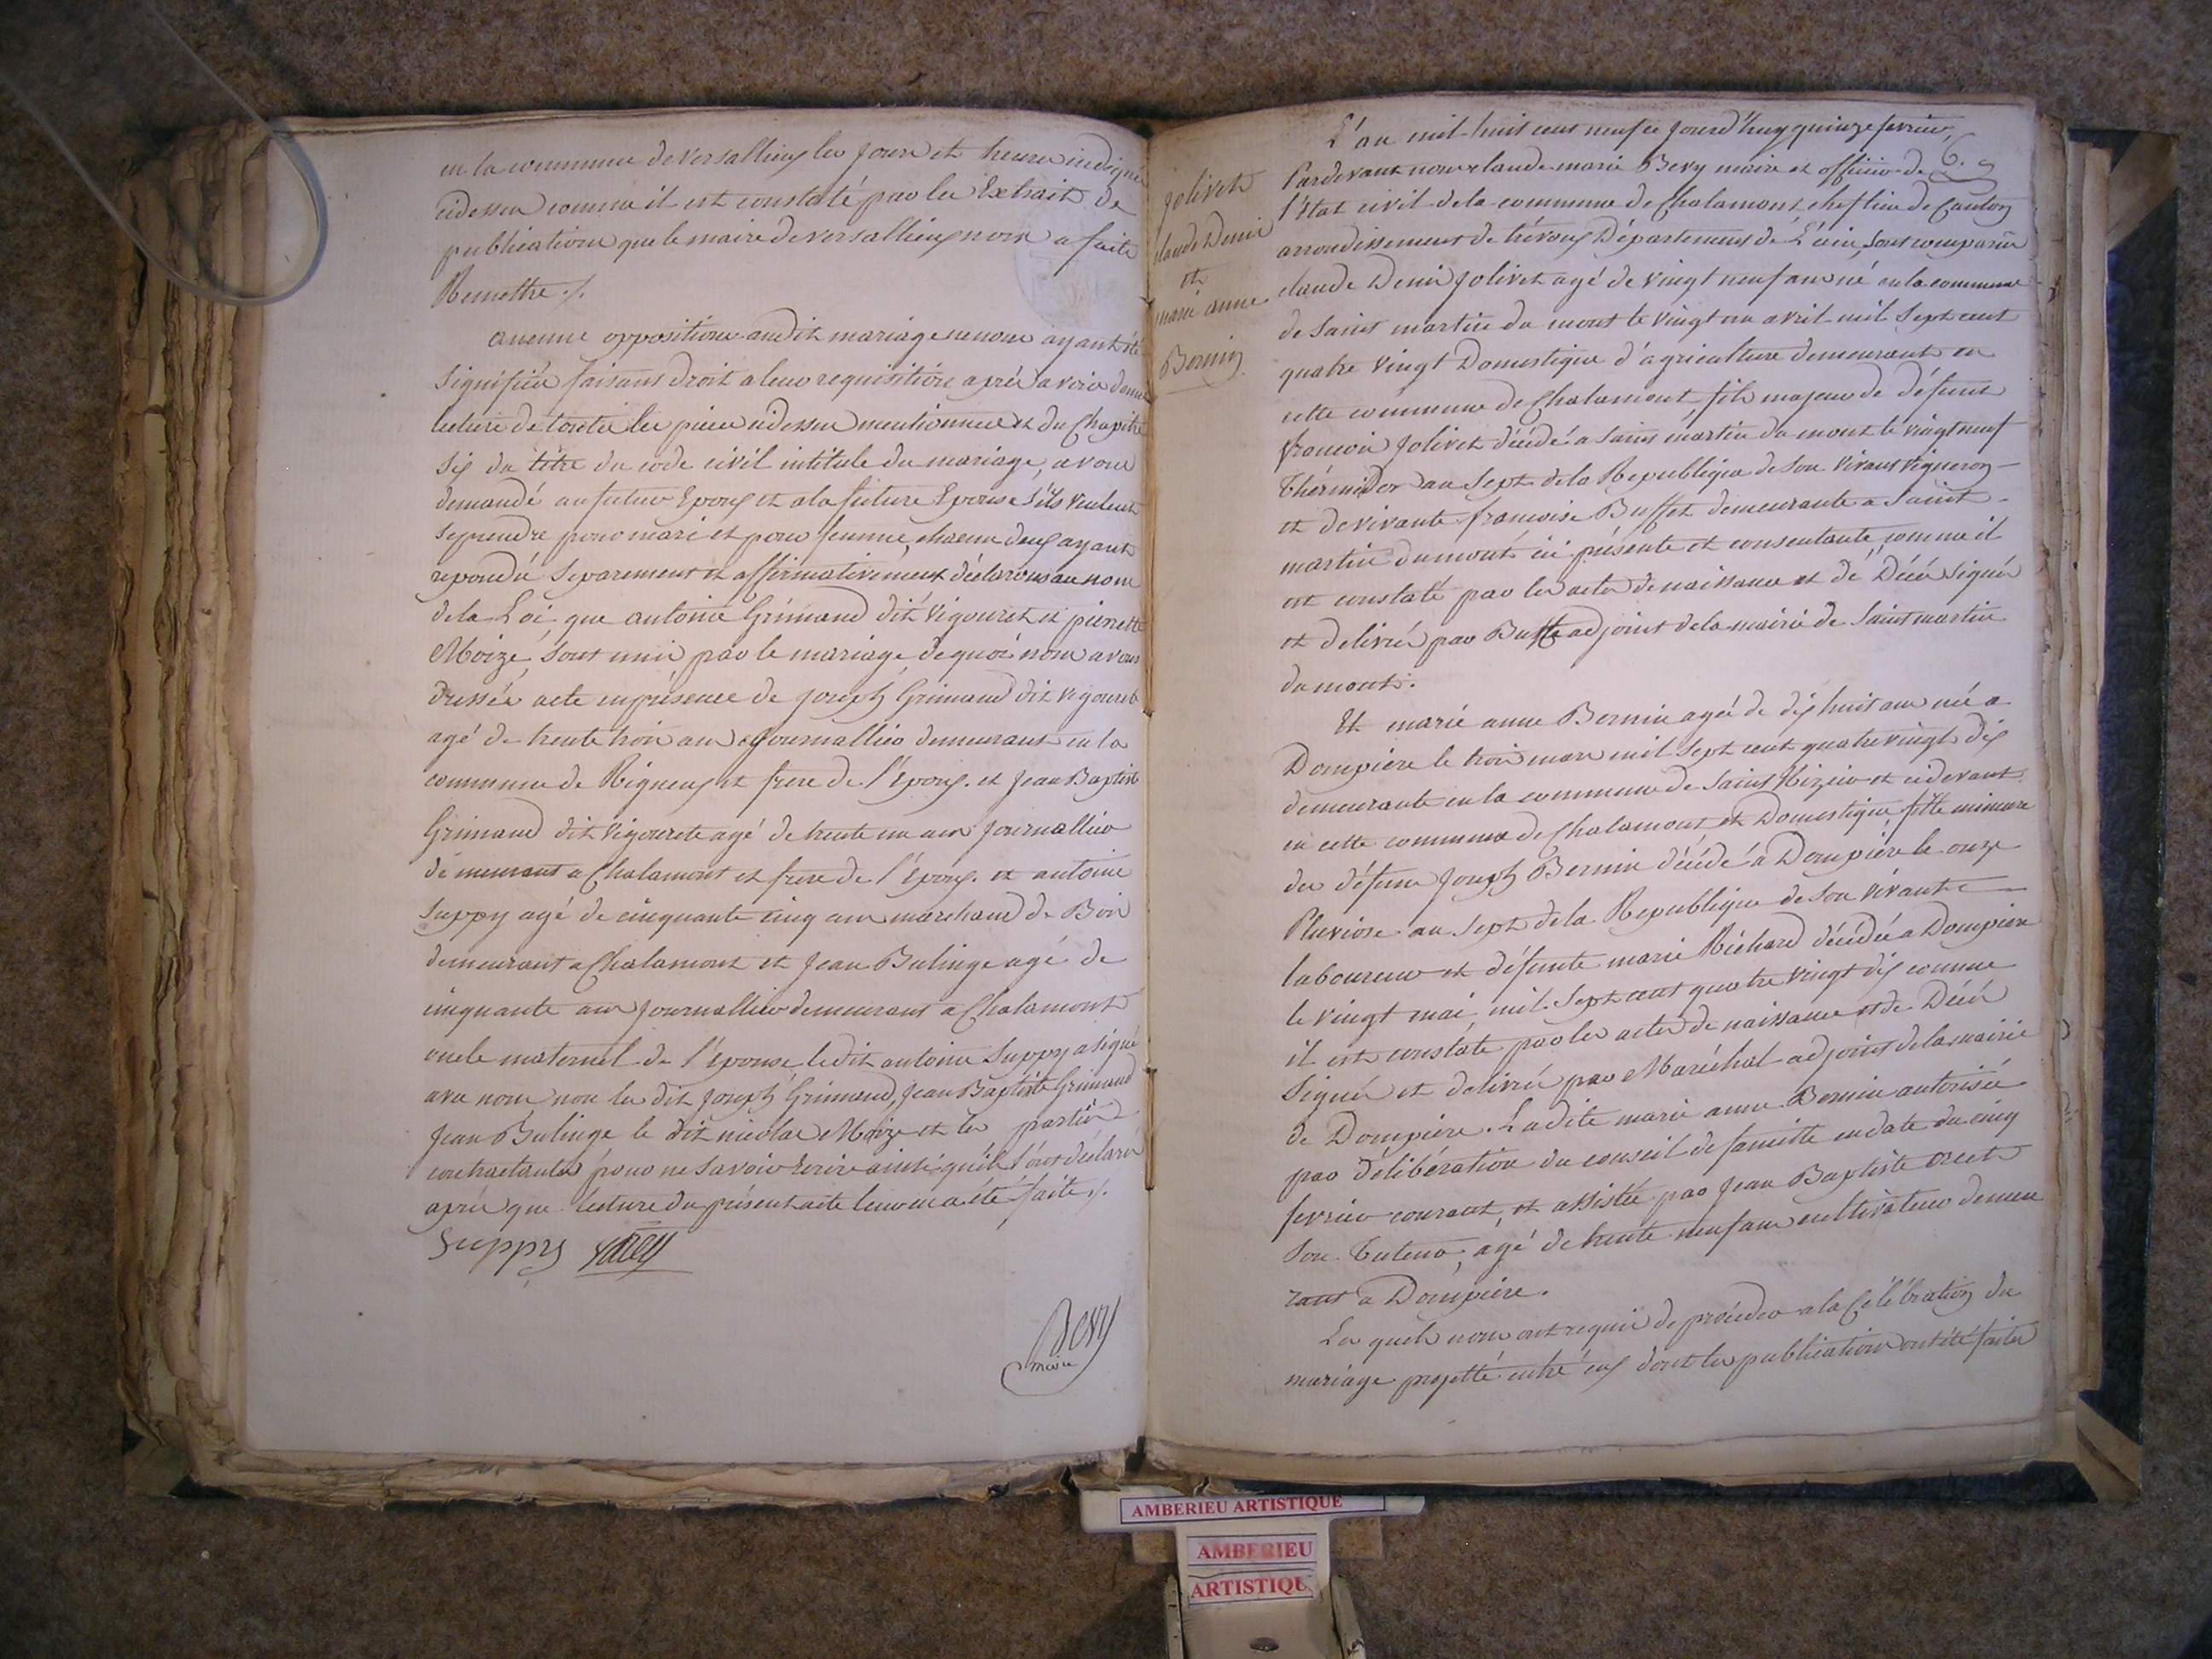 en la commune de versallieux les jours et heures indiqués
cidessus comme il est constaté par les Extraits de
publications que le maire de versallieux nous a fait
Remettre ./.
aucune opposition audit mariage ne nous ayant été
Signifiée faisant droit a leur requisition après avoir donné
lecture de toutes les pièces cidessus mentionnées et du Chapitre
Six du titre du code civil intitulé du mariage, avons
demandé au futur Epoux et a la future Epouse s'ils veulent
se prendre pour mari et pour femme, chacun deux ayant
repondu Separement et affirmativement déclarons au nom
de la Loi que antoine Grimaud dit vigouret et pierrette
Moize, sont unis par le mariage, de quoi nous avons
dressée acte en présence de joseph Grimaud dit vigouret
agé de trente trois ans journallier demeurant en la
commune de Rigneux et frere de l'Epoux. et Jean Baptiste
Grimaud dit vigouret agé de trente un ans journallier
demeurant a Chalamont et frere de l'Epoux. et antoine
Suppy agé de cinquante cinq ans marchand de Bois
demeurant a Chalamont et Jean Bulinge agé de
cinquante ans journallier demeurant a Chalamont
oncle maternel de l'épouse, ledit antoine Suppy a signé
avec nous non les dit joseph Grimaud, Jean Baptiste Grimaud
Jean Bulinge le dit nicolas Moize et les parties
contractantes pour ne savoir Ecrire ainsi qu'ils l'ont déclaré
après que lecture du présent acte leur en a été faite ./.
Suppy
Bevy
maire
Jolivet
claude Denis
et
marie anne
Bernin
L'an mil huit cent neuf ce jourd'huy quinze fevrier,
6.
Pardevant nous claude marie Bevy maire et officier de
l'Etat civil de la commune de Chalamont chef lieu de Canton
arrondissement de trévoux Département de L'ain, sont comparus
claude Denis Jolivet agé de vingt neuf ans né en la commune
de Saint martin du mont le vingt un avril mil Sept cent
quatre vingt Domestique d'agriculture demeurant en
cette commune de Chalamont, fils majeur de défunt
francois Jolivet décédé a Saint martin du mont le vingt neuf
Thérmidor an Sept de la Republique de son vivant vigneron
et de vivante francoise Buffet demeurante a Saint
martin du mont ici présente et consentante, comme il
est constaté par les actes de naissance et de Décès signés
et delivrés par Buffet adjoint de la mairie de Saint martin
du mont.
Et marie anne Bernin agée de dix huit ans née a
Dompière le trois mars mil Sept cent quatre vingt dix
demeurante en la commune de Saint Nizier et cidevant
en cette commune de Chalamont, et Domestique fille mineure
de défunt joseph Bernin décédé a Dompière le onze
Pluviose an Sept de la Republique de Son vivant
laboureur et défunte marie Richard décédée a Dompière
le vingt mai mil Sept cent quatre vingt dix comme
il est constaté par les actes de naissance et de Décès
Signés et delivrés par Maréchal adjoint de la mairie
de Dompière. Ladite marie anne Bernin autorisée
par délibération du conseil de famille en date du cinq
fevrier courant, et assistée par Jean Baptiste
Son Tuteur, agé de trente neuf ans cultivateur demeu
rant a Dompière.
Les quels nous ont requis de procéder a la Célébration du
mariage projetté entre eux dont les publications ont été faites
AMBERIEU ARTISTIQUE
AMBERIEU
ARTISTIQUE